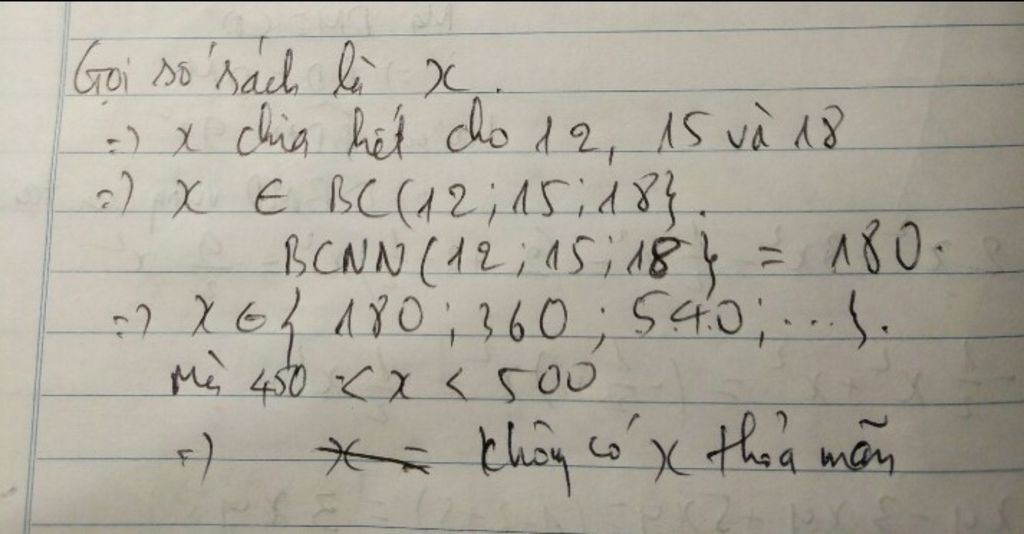 Gọi số sách là x.
=) x chia hết cho 12, 15 và 18
=) x ∈ BC(12; 15; 18}.
BCNN(12; 15; 18} = 180.
=) x ∈ { 180; 360; 540; ... }.
Mà 450 < x < 500
=) không có x thỏa mãn